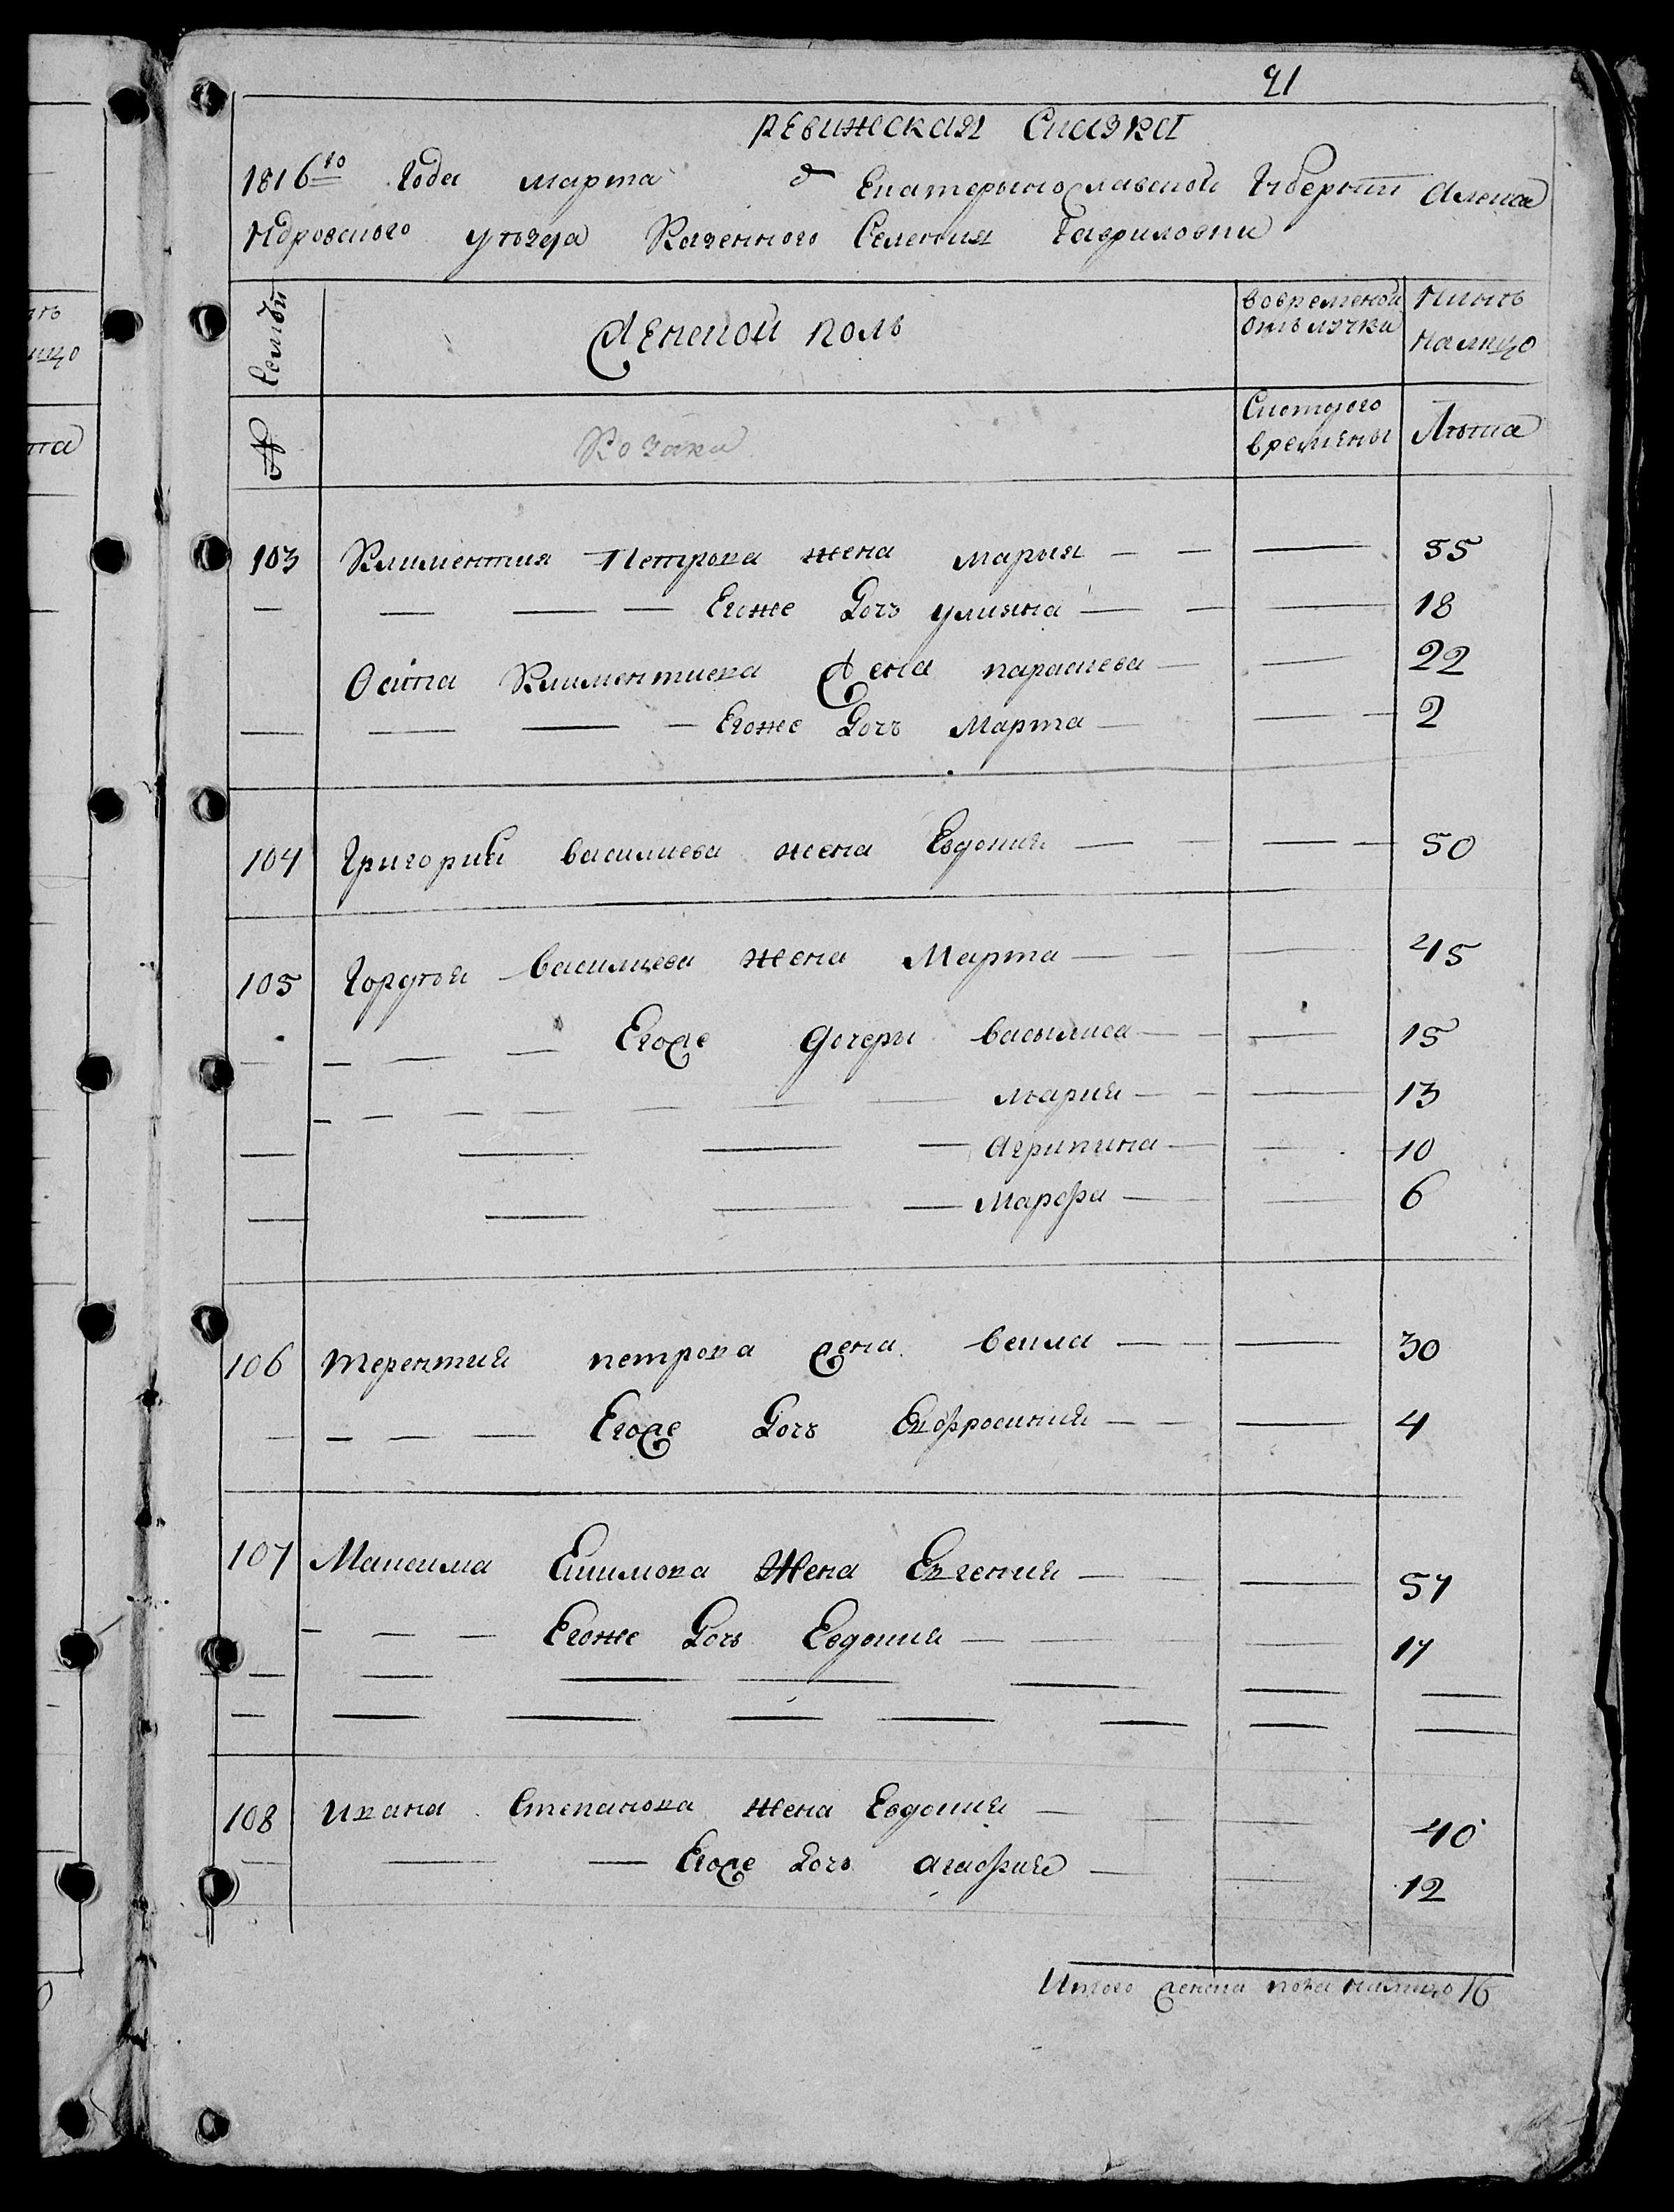 21
ревижская Сказка
1816го Года марта д Екатерынославской Губернии Алекса
ндровского уѣзда Казенного Селения Гавриловки
Семьи
Женской полъ
вовременой Нынѣ
отълучки налицо
№
Козаки
Скоторого Лѣта
времены
103 Климентия Петрова жена марья — — — 55
— — — — Егоже Дочь улияна — — — 18
Осипа Климентиева жена параскева — — 22
— — — — Егоже Дочь Марта — — — 2
104 Григорий василиева жена Евдокия — — — — 50
105 Гордѣя василиева жена Марта — — — 45
— — — — Егоже дочери васылиса — — — 15
— — — — — — — мария — — — 13
— — — — агрипина — — 10
— — — — Марфа — — 6
106 терентия петрова жена векла — — — 30
— — — — Егоже Дочь Евфросиния — — — 4
107 Максима Екимова Жена Евгения — — — 57
— — — Егоже Дочь Евдокия — — — 17
108 ивана Степанова жена Евдокия — — — 40
— — — Егоже дочь агафия — — 12
Итого женска пола налицо 16